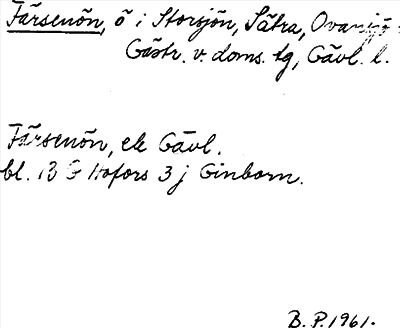 Färsenön, ö i Storsjön, Sätra, Ovansjö
Gästr. v. doms. tg, Gävl. l.
Färsenön, ek Gävl.
bl. 13 G Hofors 3 j Ginborn.
B. P. 1961.